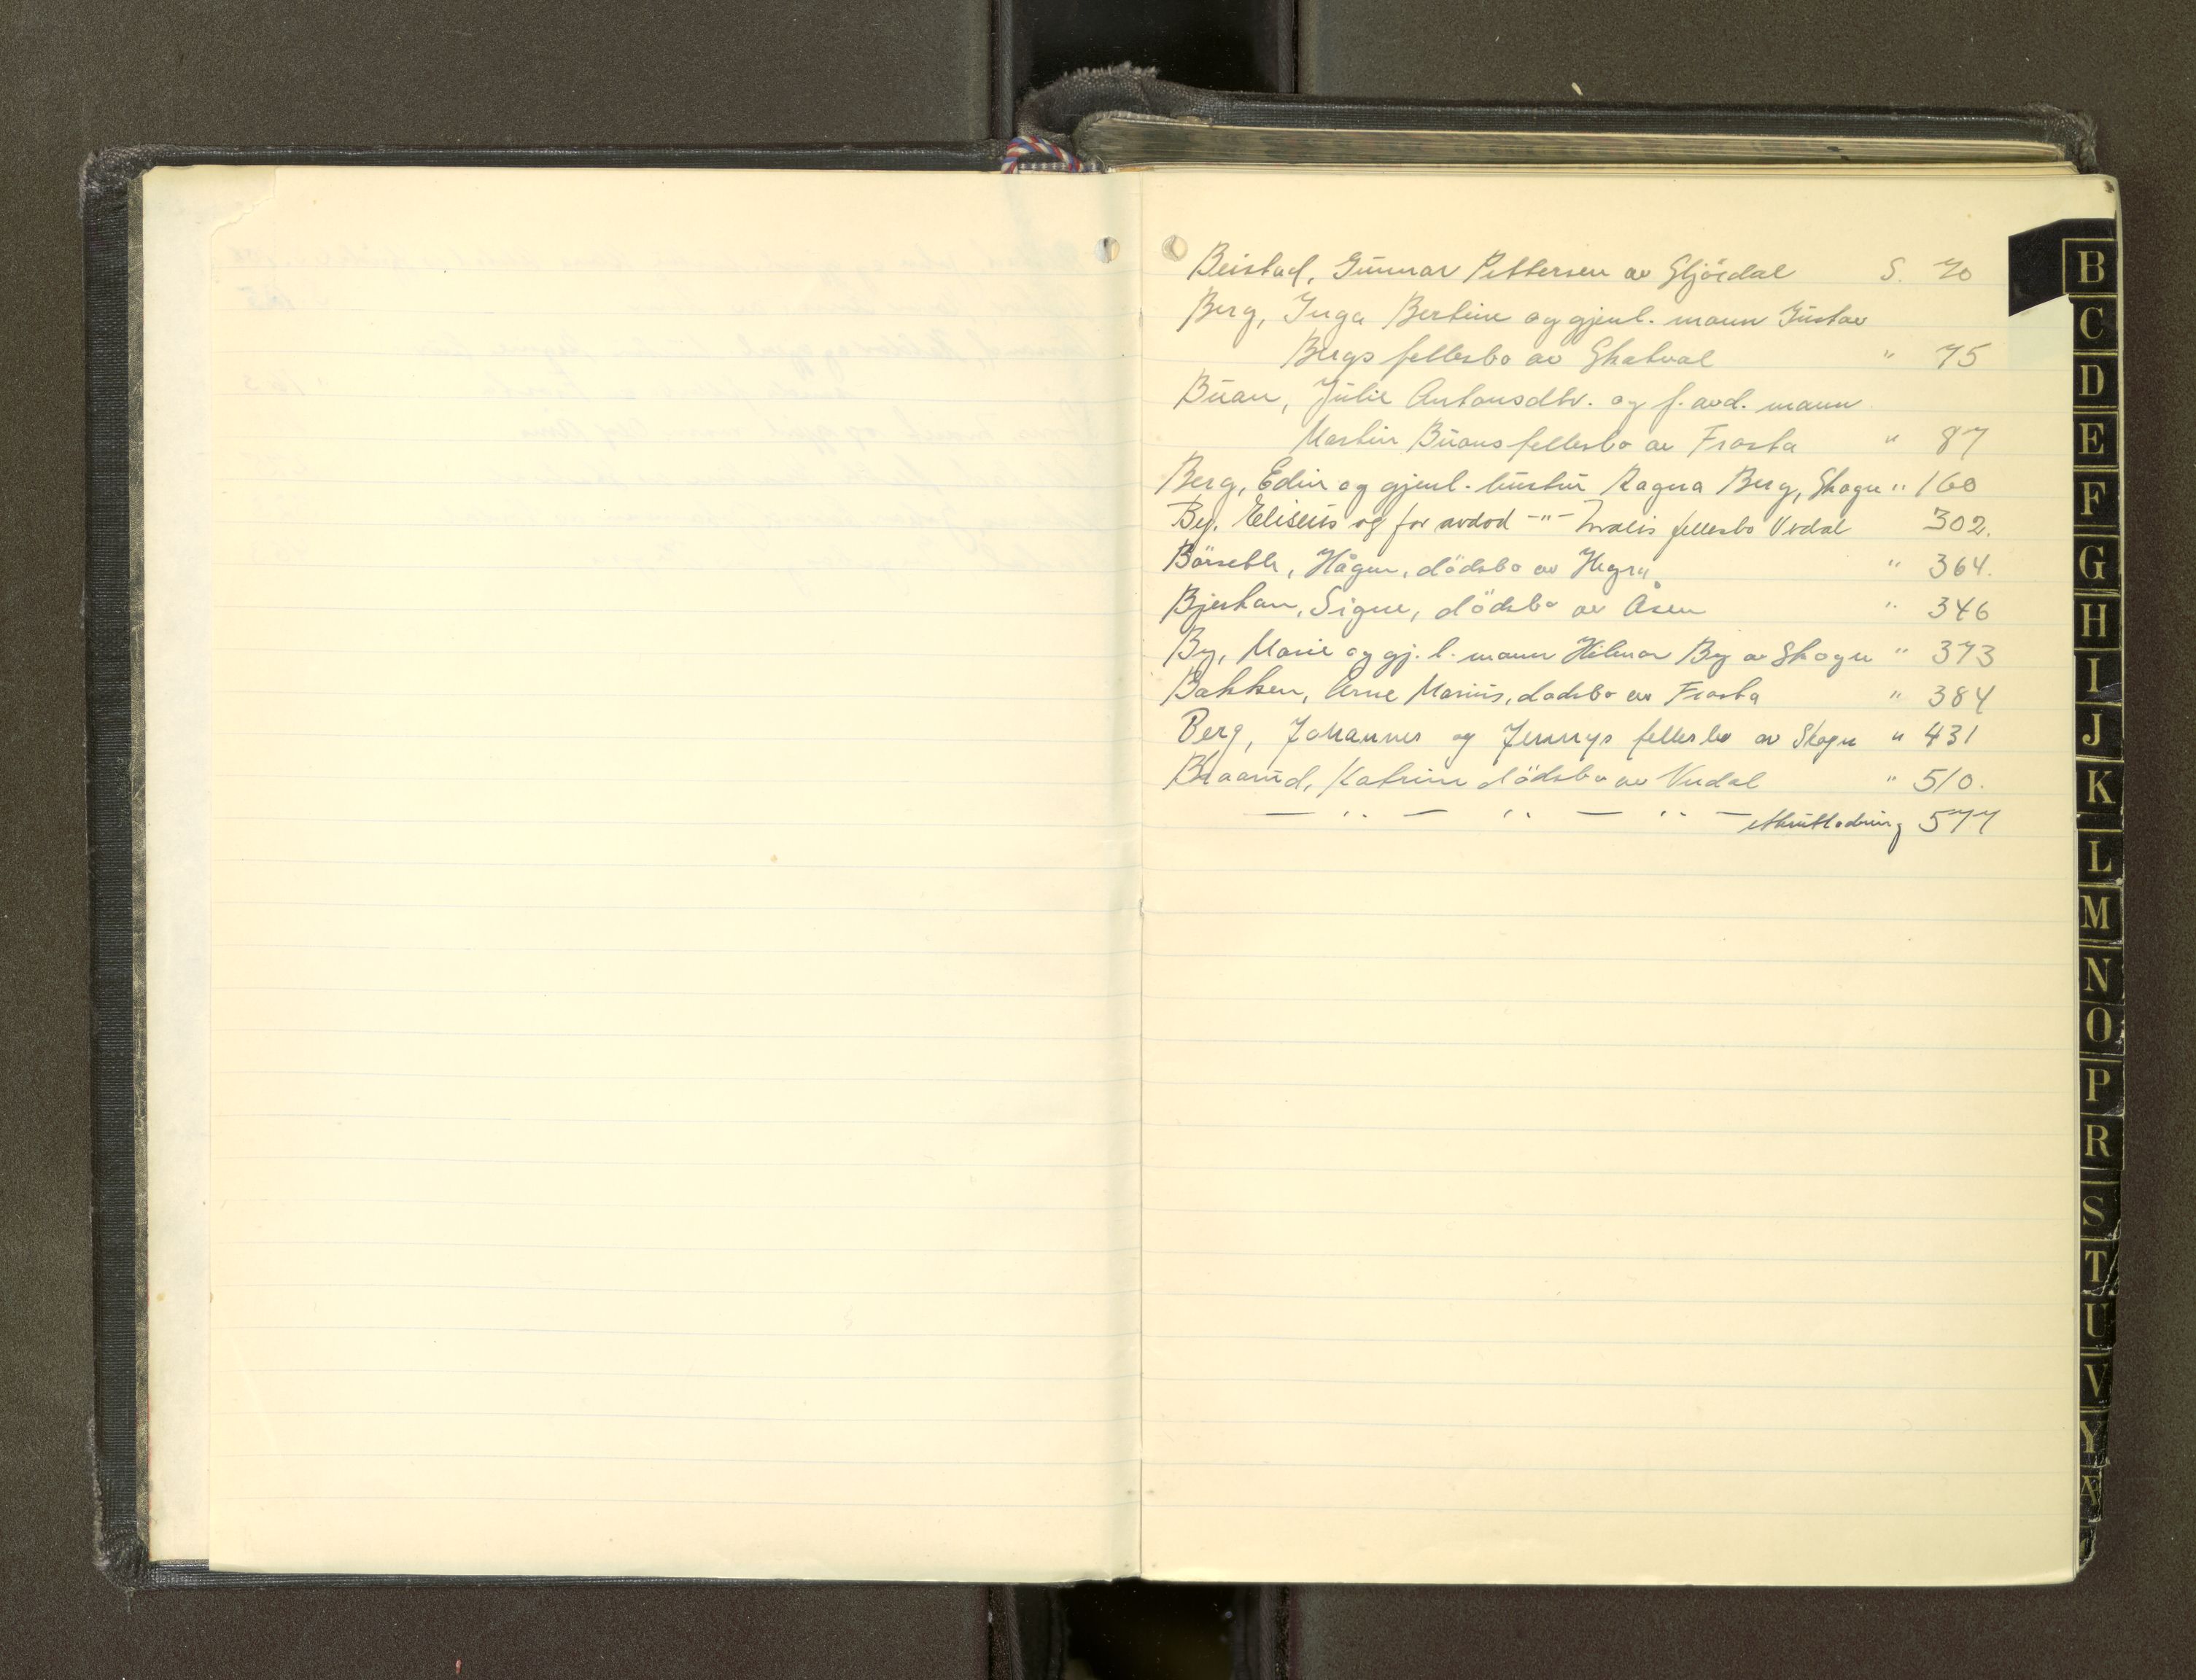 Beistad, Gunnar Pettersen av Stjördal S. 70
Berg, Inga Bertine og gjenl. mann Gustav
Bergs fellesbo av Skatval " 75
Buan, Julie Antonsdtr. og f. avd. mann
Martin Buans fellesbo av Frosta " 87
Berg, Edin og gjenl. hustru Ragna Berg, Skogn " 160
By, Eliseus og for avdød -"- fellesbo Verdal 302.
Börseth, Hågen, dödsbo av Hegra " 364.
Bjerkan, Signe, dödsbo av Åsen " 346
By, Marie og gj. l. mann Hilmar By av Skogn " 373
Bakken, Arne Marius, dødsbo av Frosta " 384
Berg, Johannes og Jennys fellesbo av Skogn " 431
Braarud, Katrine dödsbo av Verdal " 510.
— " — " — " — etterutlodning 577
B
C
D
E
F
G
H
I
J
K
L
M
N
O
P
R
S
T
U
V
Y
Æ